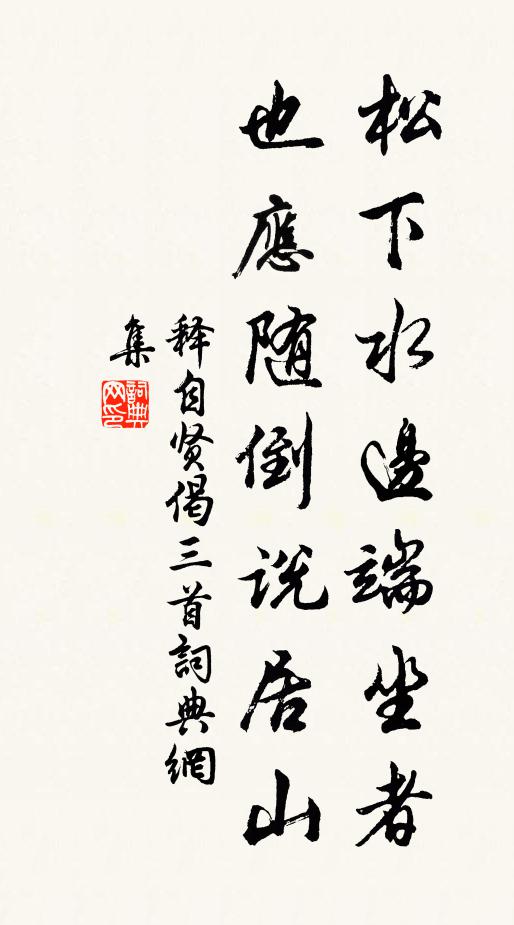 松下水邊端坐者
也應随倒説居山
释自贤偈三首詞典網
集
詞典网印